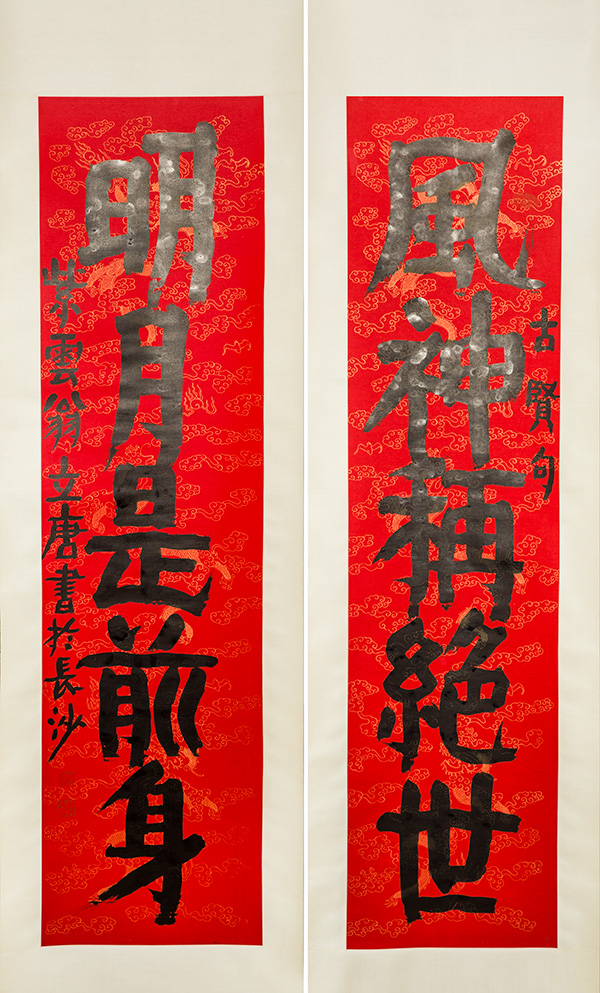 風神稱絶世
古賢句
明月是前身
紫雲翁立唐書於長沙